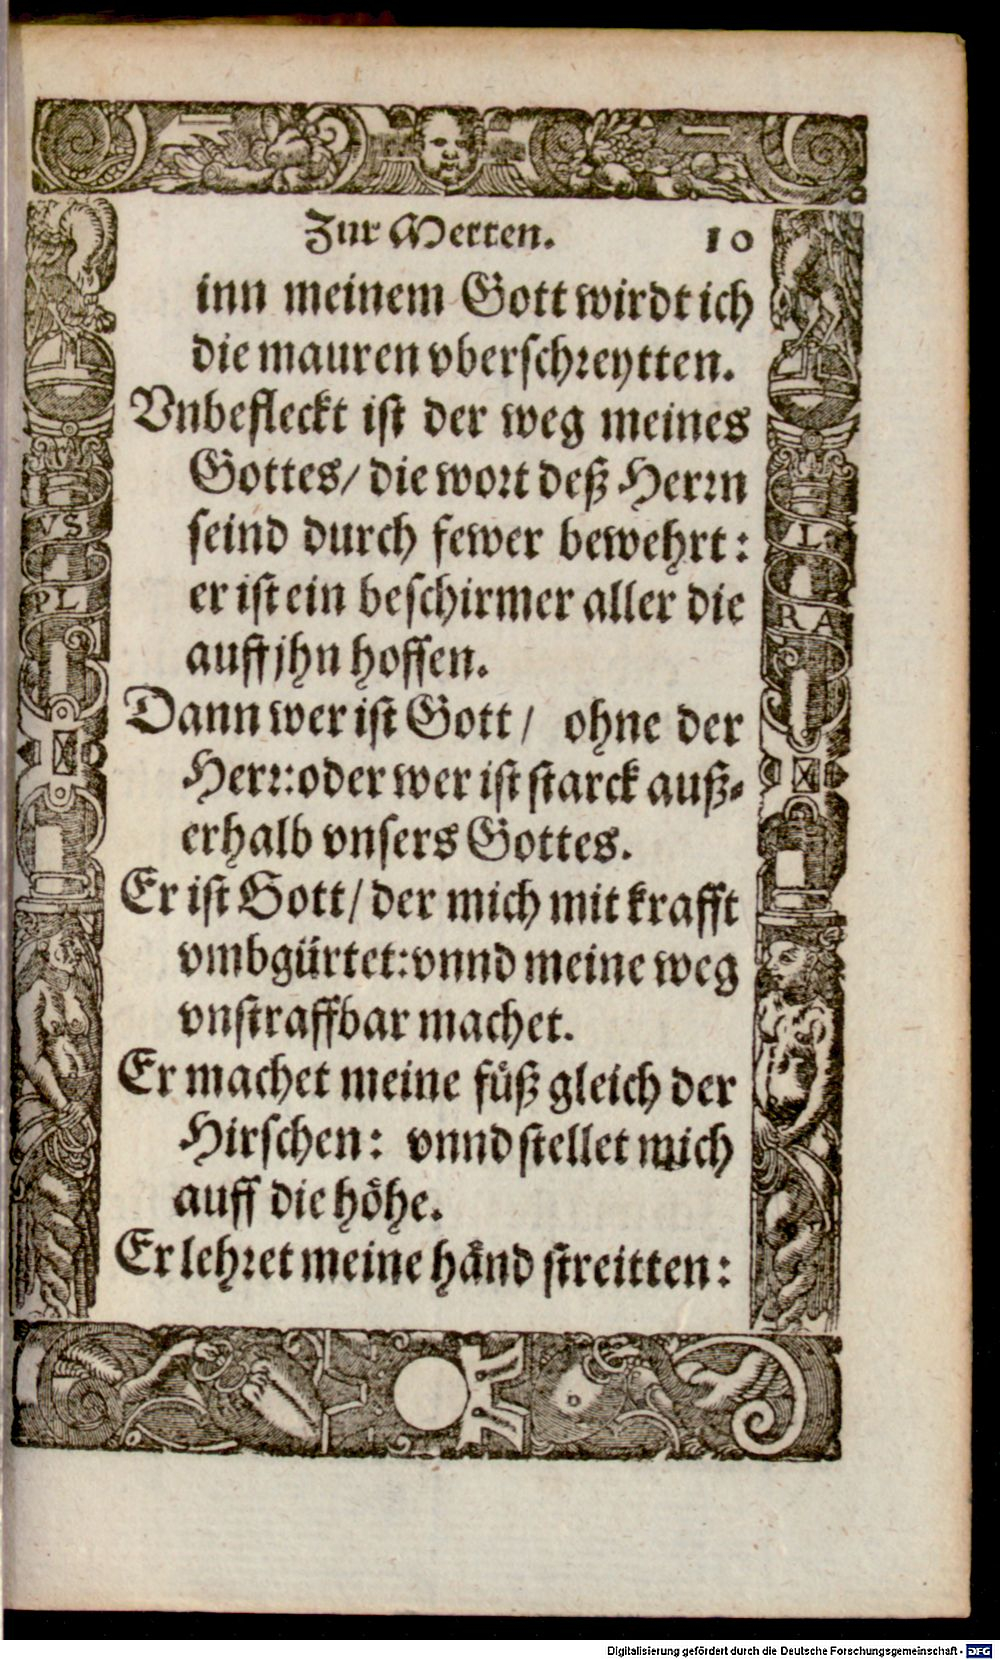 Zur Metten. 10
inn meinem Gott wirdt ich
die mauren vberschreytten.
Vnbefleckt ist der weg meines
Gottes/ die wort deß Herrn
seind durch fewer bewehrt:
er ist ein beschirmer aller die
auff jhn hoffen.
Dann wer ist Gott/ ohne der
Herr: oder wer ist starck auß⸗
erhalb vnsers Gottes.
Er ist Gott/ der mich mit krafft
vmbgürtet: vnnd meine weg
vnstraffbar machet.
Er machet meine füß gleich der
Hirschen: vnnd stellet mich
auff die höhe.
Er lehret meine händ streitten:
VS
PL
L
RA
Digitalisierung gefördert durch die Deutsche Forschungsgemeinschaft - DFG